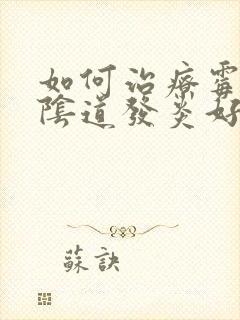 如何治療霉
陰道發炎好
蘇訣